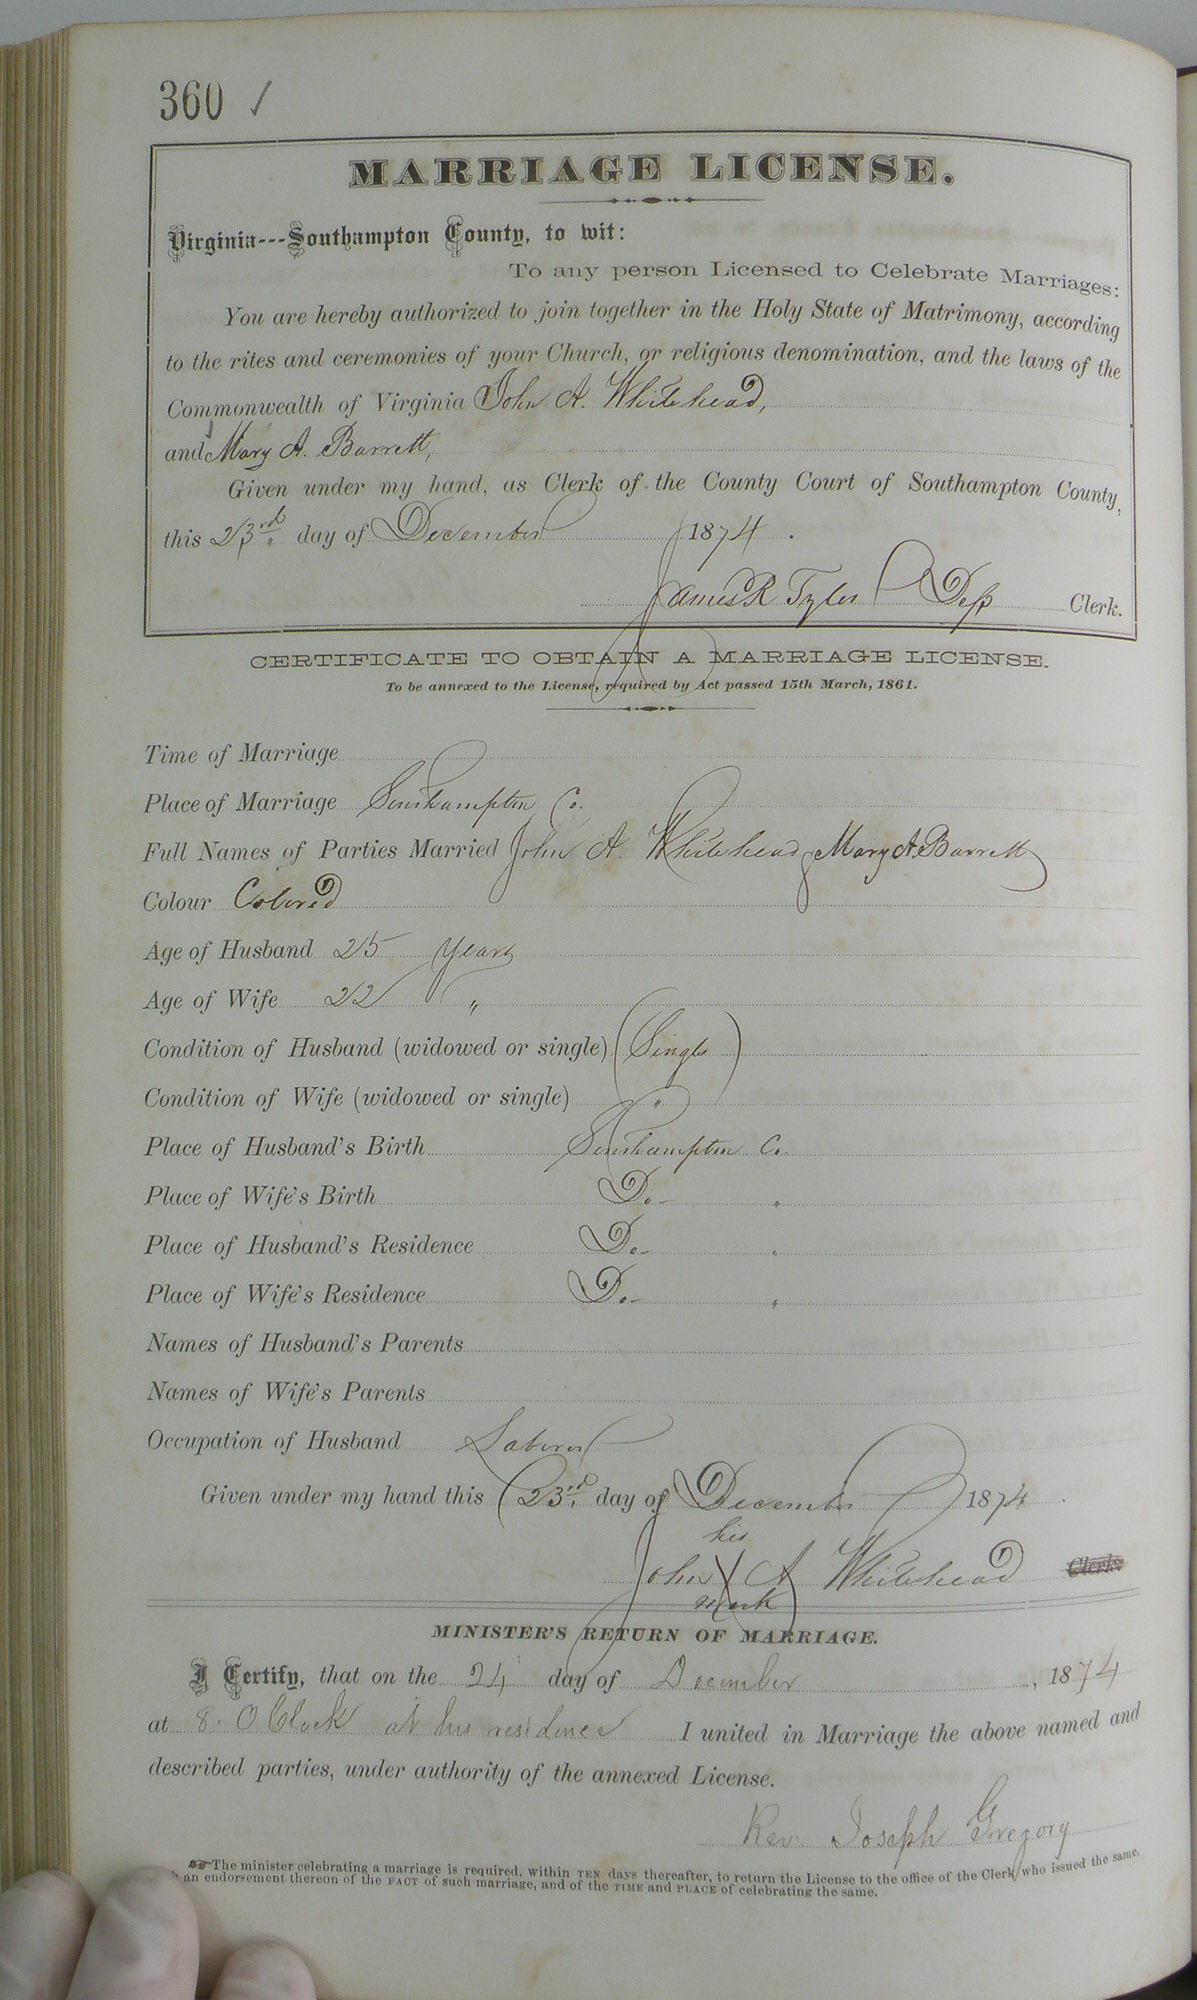 360 ✓
MARRIAGE LICENSE.
Virginia---Southampton County, to wit:
To any person Licensed to Celebrate Marriages:
You are hereby authorized to join together in the Holy State of Matrimony, according
to the rites and ceremonies of your Church, or religious denomination, and the laws of the
Commonwealth of Virginia John A. Whitehead,
and Mary A. Barrett,
Given under my hand, as Clerk of the County Court of Southampton County,
this 23rd day of December 1874.
James R Tyler Dep Clerk.
CERTIFICATE TO OBTAIN A MARRIAGE LICENSE.
To be annexed to the License, required by Act passed 15th March, 1861.
Time of Marriage
Place of Marriage Southampton Co.
Full Names of Parties Married John A. Whitehead & Mary A. Barrett
Colour Colored
Age of Husband 25 Years
Age of Wife 22 "
Condition of Husband (widowed or single) Single
Condition of Wife (widowed or single) "
Place of Husband's Birth Southampton Co.
Place of Wife's Birth Do- "
Place of Husband's Residence Do- "
Place of Wife's Residence Do- "
Names of Husband's Parents
Names of Wife's Parents
Occupation of Husband Laborer
Given under my hand this 23rd day of December 1874.
his
John X A Whitehead Clerk
mark
MINISTER'S RETURN OF MARRIAGE.
I Certify, that on the 24 day of December, 1874
at 8. O Clock at his residence I united in Marriage the above named and
described parties, under authority of the annexed License.
Rev. Joseph Gregory
The minister celebrating a marriage is required, within TEN days thereafter, to return the License to the office of the Clerk who issued the same,
an endorsement thereon of the FACT of such marriage, and of the TIME and PLACE of celebrating the same.